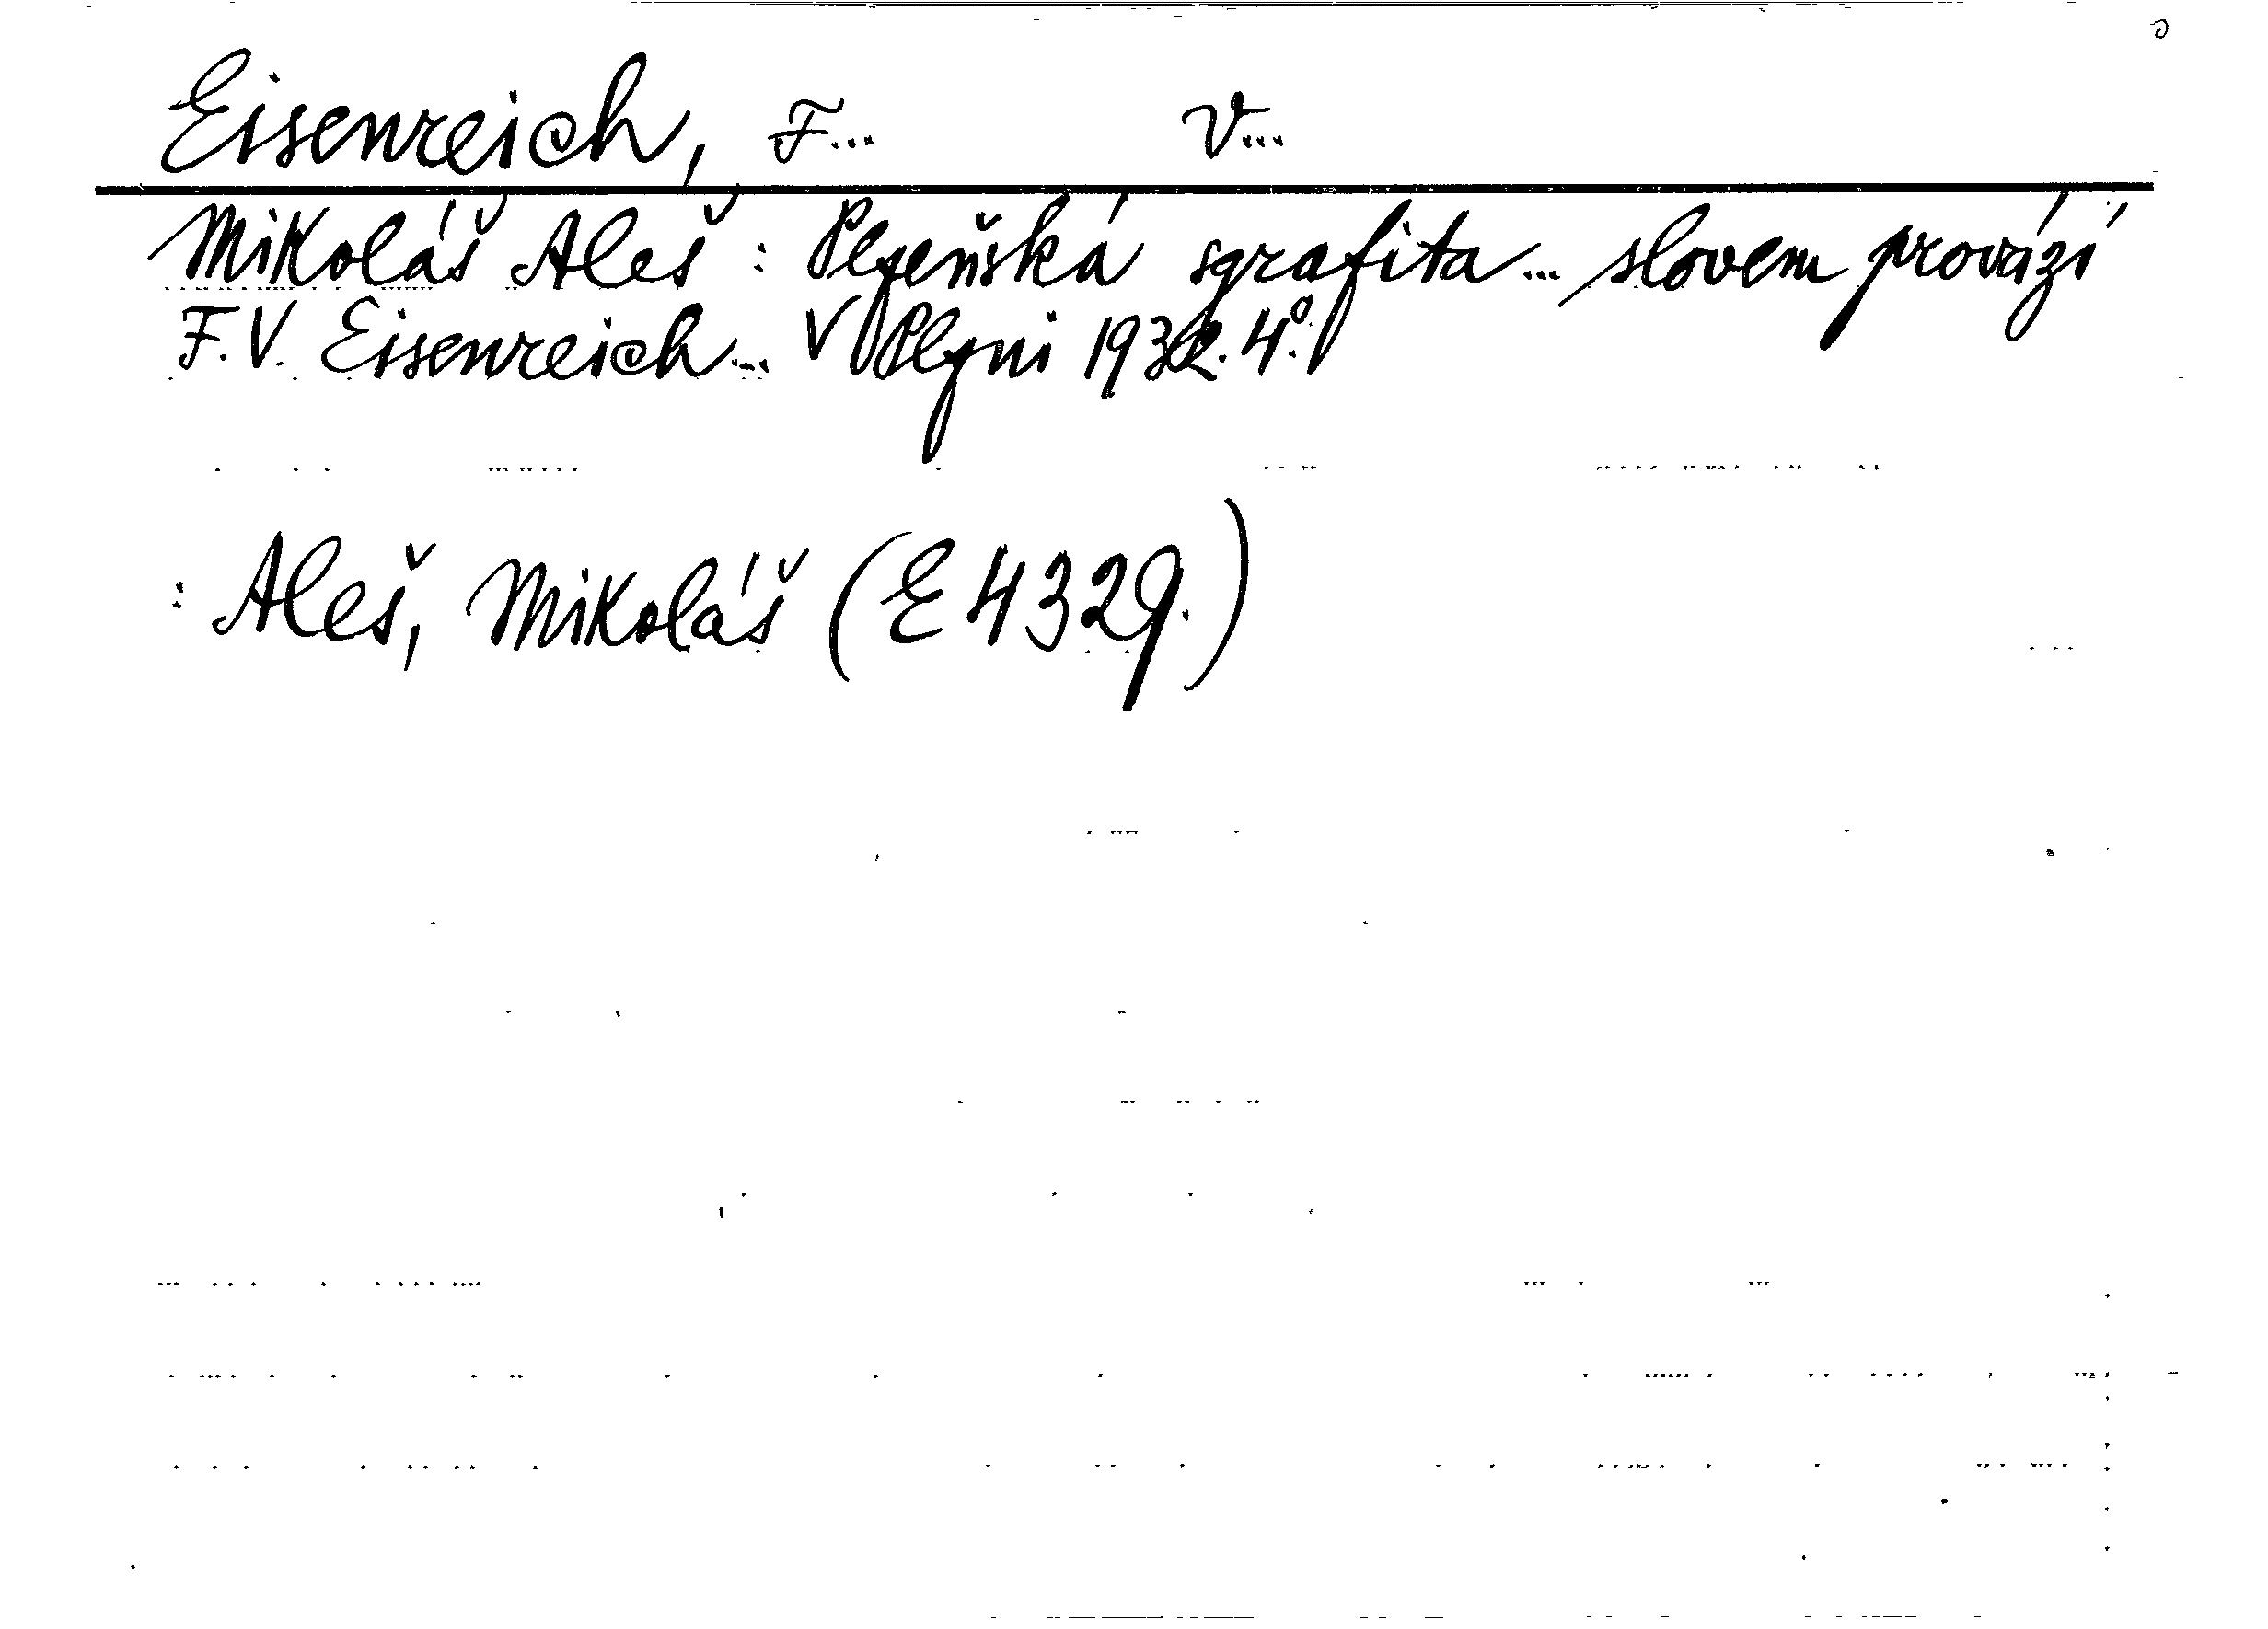 Eisenreich, F... V...
Mikoláš Aleš: Plzeňská sgrafita... slovem provází
F. V. Eisenreich... V Plzni 1932. 4°.
: Aleš, Mikoláš (E 4329.)